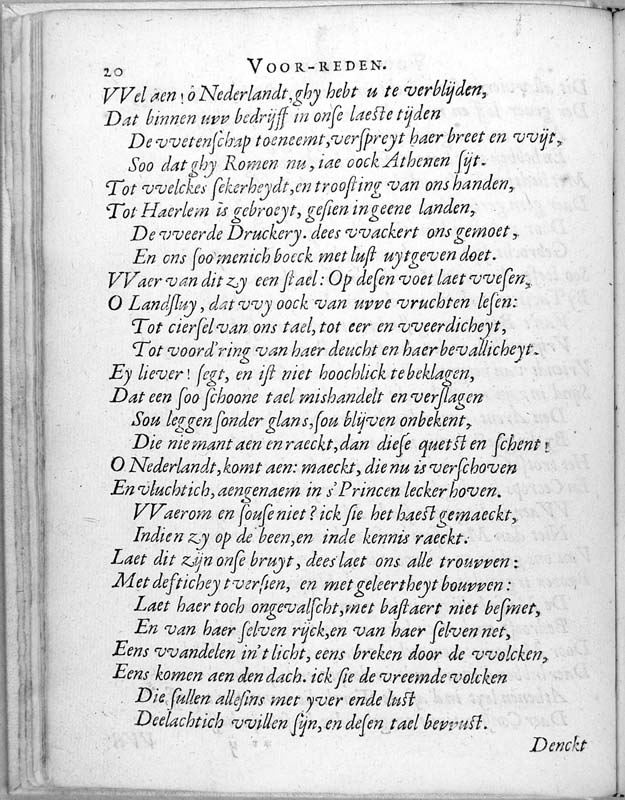 20 VOOR-REDEN.
VVel aen! ô Nederlandt, ghy hebt u te verblijden,
Dat binnen uvv bedrijff in onse laeste tijden
De vvetenschap toeneemt, verspreyt haer breet en vvijt,
Soo dat ghy Romen nu, iae oock Athenen sijt.
Tot vvelckes sekerheydt, en troosting van ons handen,
Tot Haerlem is gebroeyt, gesien in geene landen,
De vveerde Druckery. dees vvackert ons gemoet,
En ons soo menich boeck met lust uytgeven doet.
VVaer van dit zy een stael: Op desen voet laet vvesen,
O Landsluy, dat vvy oock van uvve vruchten lesen:
Tot ciersel van ons tael, tot eer en vveerdicheyt,
Tot voord'ring van haer deucht en haer bevallicheyt.
Ey liever! segt, en ist niet hoochlick te beklagen,
Dat een soo schoone tael mishandelt en verslagen
Sou leggen sonder glans, sou blijven onbekent,
Die niemant aen en raeckt, dan diese quetst en schent!
O Nederlandt, komt aen: maeckt, die nu is verschoven
En vluchtich, aengenaem in s'Princen lecker hoven.
VVaerom en souse niet? ick sie het haest gemaeckt,
Indien zy op de been, en inde kennis raeckt.
Laet dit zijn onse bruyt, dees laet ons alle trouvven:
Met deftichey t versien, en met geleertheyt bouvven:
Laet haer toch ongevalscht, met bastaert niet besmet,
En van haer selven rijck, en van haer selven net,
Eens vvandelen in't licht, eens breken door de vvolcken,
Eens komen aen den dach. ick sie de vreemde volcken
Die sullen allesins met yver ende lust
Deelachtich vvillen sijn, en desen tael bevvust.
Denckt